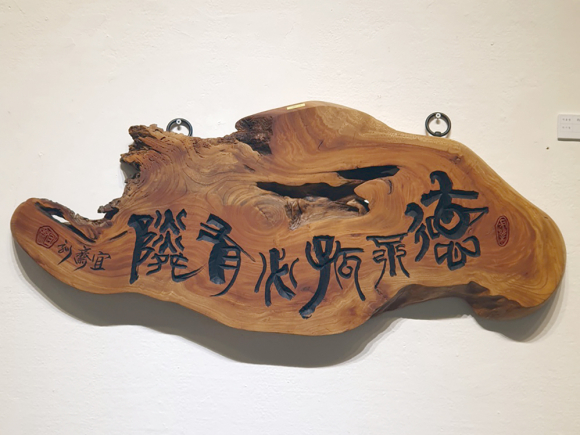 德不孤必有隣